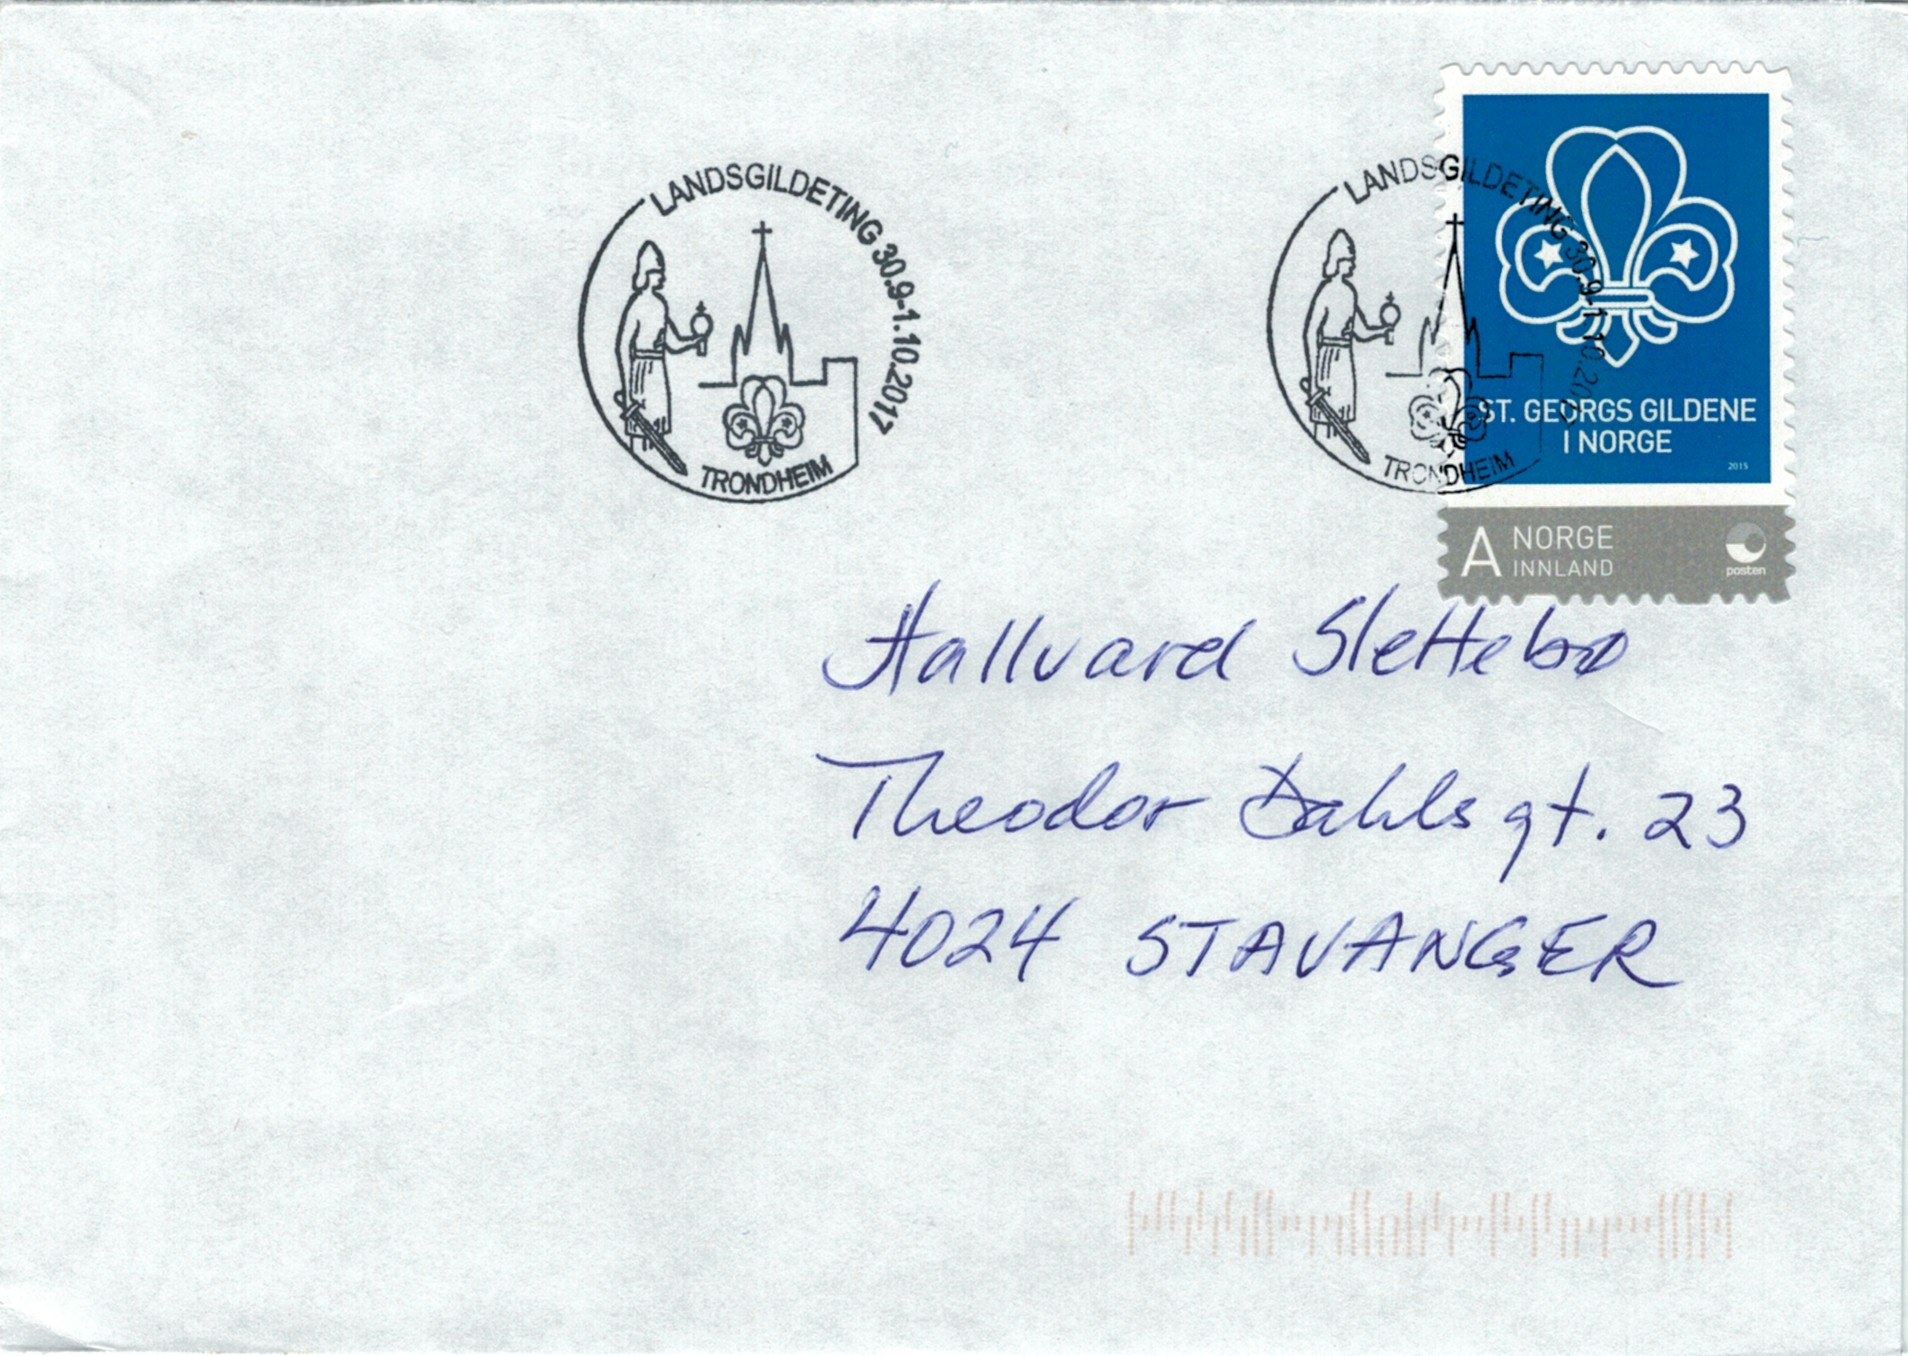 LANDSGILDETING 30.9-1.10.2017
TRONDHEIM
LANDSGILDETING 30.9-1.10.2017
TRONDHEIM
ST. GEORGS GILDENE
I NORGE
2015
A NORGE
INNLAND
posten
Hallvard Slettebø
Theodor Dahls gt. 23
4024 STAVANGER